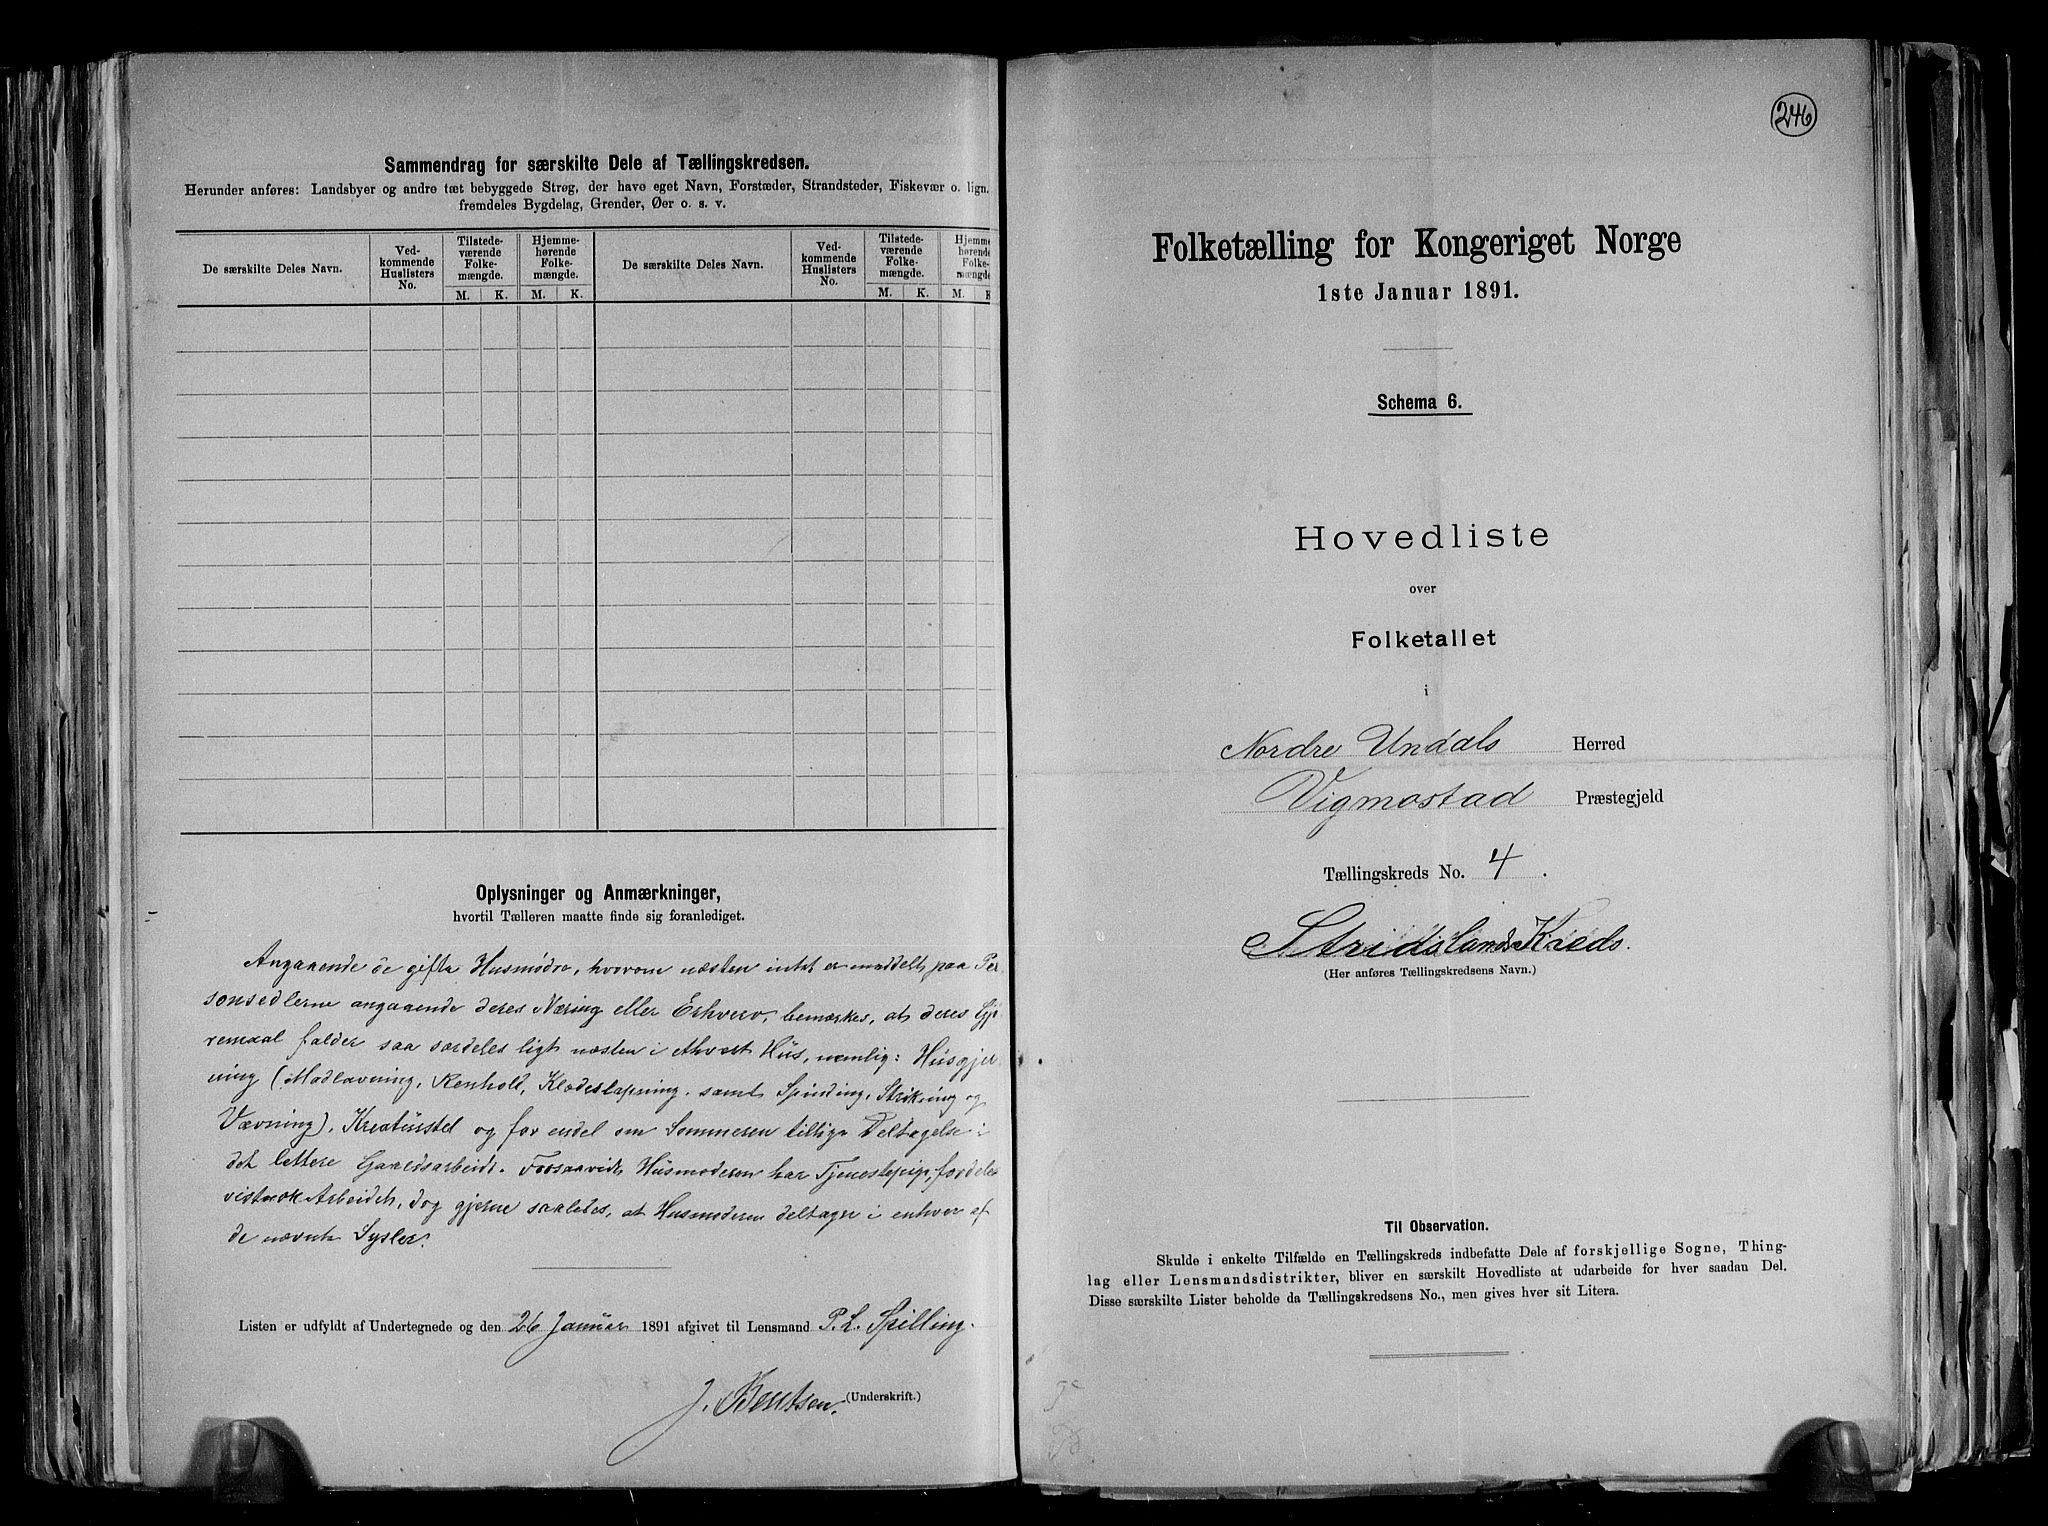 Sammendrag for særskilte Dele af Tællingskredsen.
Herunder anføres: Landsbyer og andre tæt bebyggede Strøg, der have eget Navn, Forstæder, Strandsteder, Fiskevær o. lign.
fremdeles Bygdelag, Grender, Øer o. s. v.
De særskilte Deles Navn.
Ved-
kommende
Huslisters
No.
Tilstede-
værende
Folke-
mængde.
Hjemme-
hørende
Folke-
mængde.
M. K. M. K.
De særskilte Deles Navn.
Ved-
kommende
Huslisters
No.
Tilstede-
værende
Folke-
mængde.
Hjemme-
hørende
Folke-
mængde
M. K. M. K
Oplysninger og Anmærkninger,
hvortil Tælleren maatte finde sig foranlediget.
Angaaende de gifte Husmødre, hvorom næsten intet er meddelt paa Per
sonsedlerne angaaende deres Næring eller Erhverv, bemærkes, at deres Gjø
remaal falder saa særdeles ligt næsten i ethvert Hus, nemlig: Husgjer
ning (Madlavning, Renhold, Klædeslapning, samt Spinding, Strikning og
Vævning), Kreaturstel og for endel om Sommeren tillige Deltagelse i
det lettere Gaardsarbeide. Forsaavidt Husmoderen har Tjenestepige, fordeles
vistnok Arbeidet, dog gjerne saaledes, at Husmoderen deltager i enhver af
de nævnte Sysler.
Listen er udfyldt af Undertegnede og den 26 Januar 1891 afgivet til Lensmand P. L. Spilling.
J. Bentsen. (Underskrift.)
246
Folketælling for Kongeriget Norge
1ste Januar 1891.
Schema 6.
Hovedliste
over
Folketallet
i
Nordre Undals Herred
Vigmostad Præstegjeld
Tællingskreds No. 4.
Stridslands Kreds.
(Her anføres Tællingskredsens Navn.)
Til Observation.
Skulde i enkelte Tilfælde en Tællingskreds indbefatte Dele af forskjellige Sogne, Thing-
lag eller Lensmandsdistrikter, bliver en særskilt Hovedliste at udarbeide for hver saadan Del.
Disse særskilte Lister beholde da Tællingskredsens No., men gives hver sit Litera.